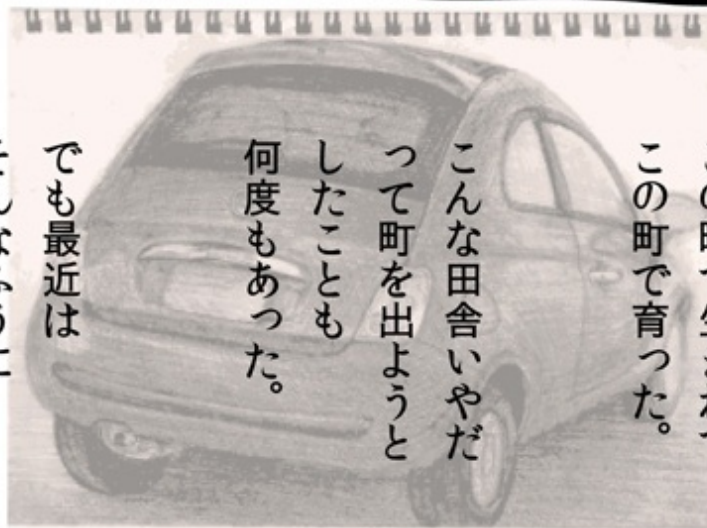 この町で育った。
こんな田舎いやだ
って町を出ようと
したことも
何度もあった。
でも最近は